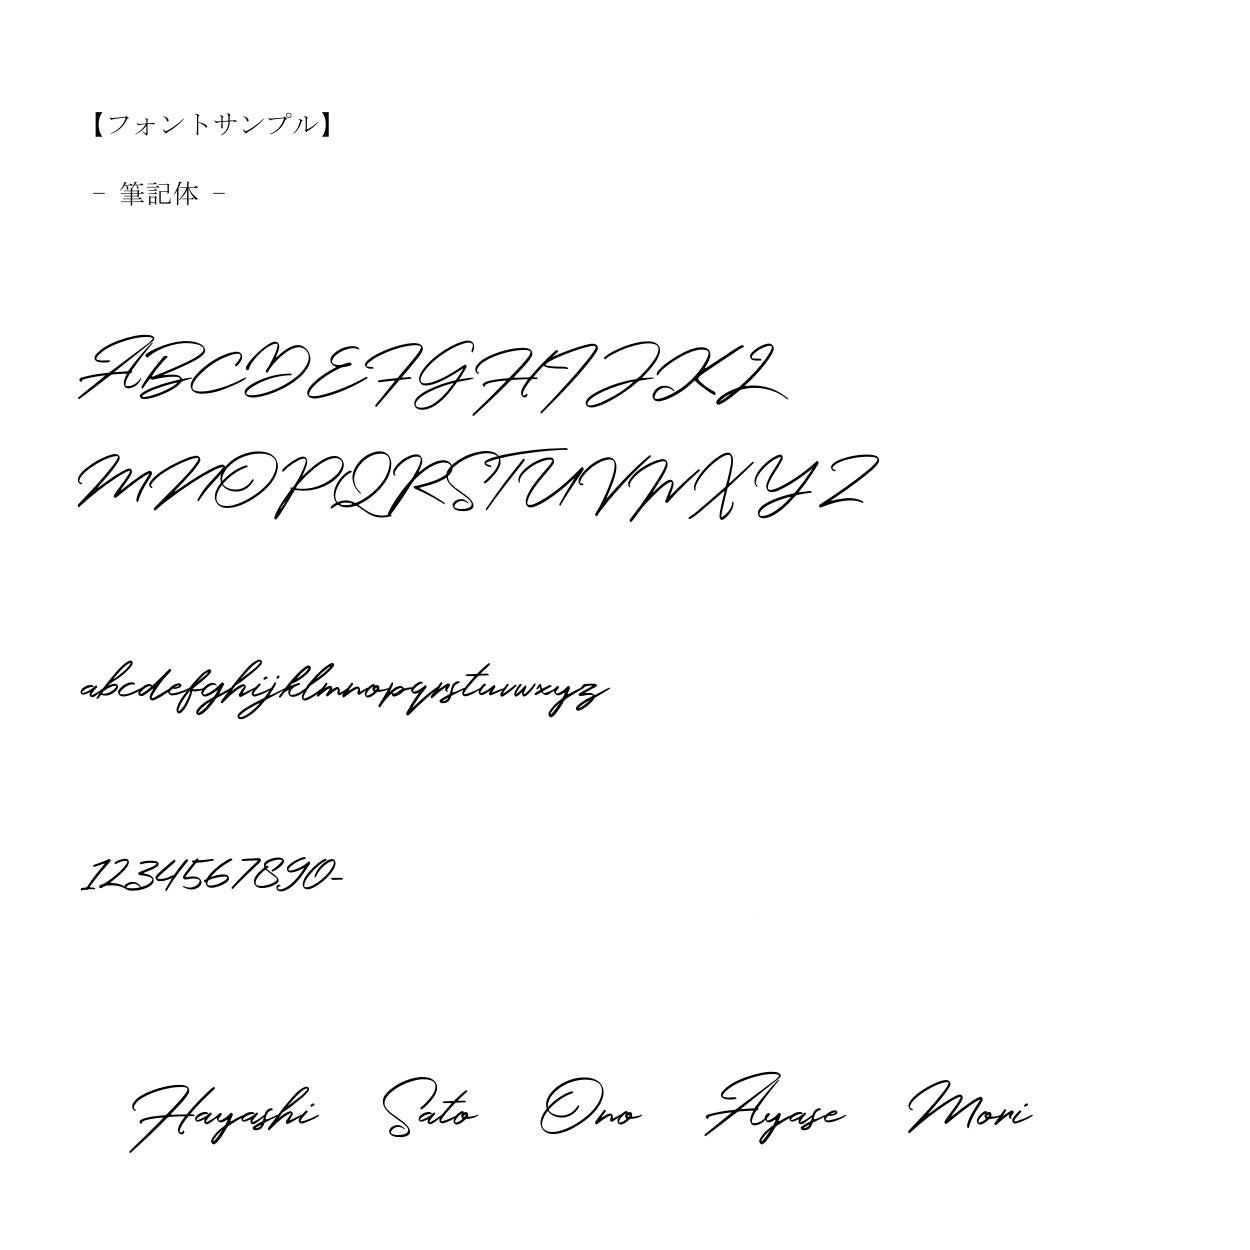 【フォントサンプル】
- 筆記体 -
ABCDEFGHIJKL
MNOPQRSTUVWXYZ
abcdefghijklmnopqrstuvwxyz
1234567890-
Hayashi Sato Ono Ayase Mori